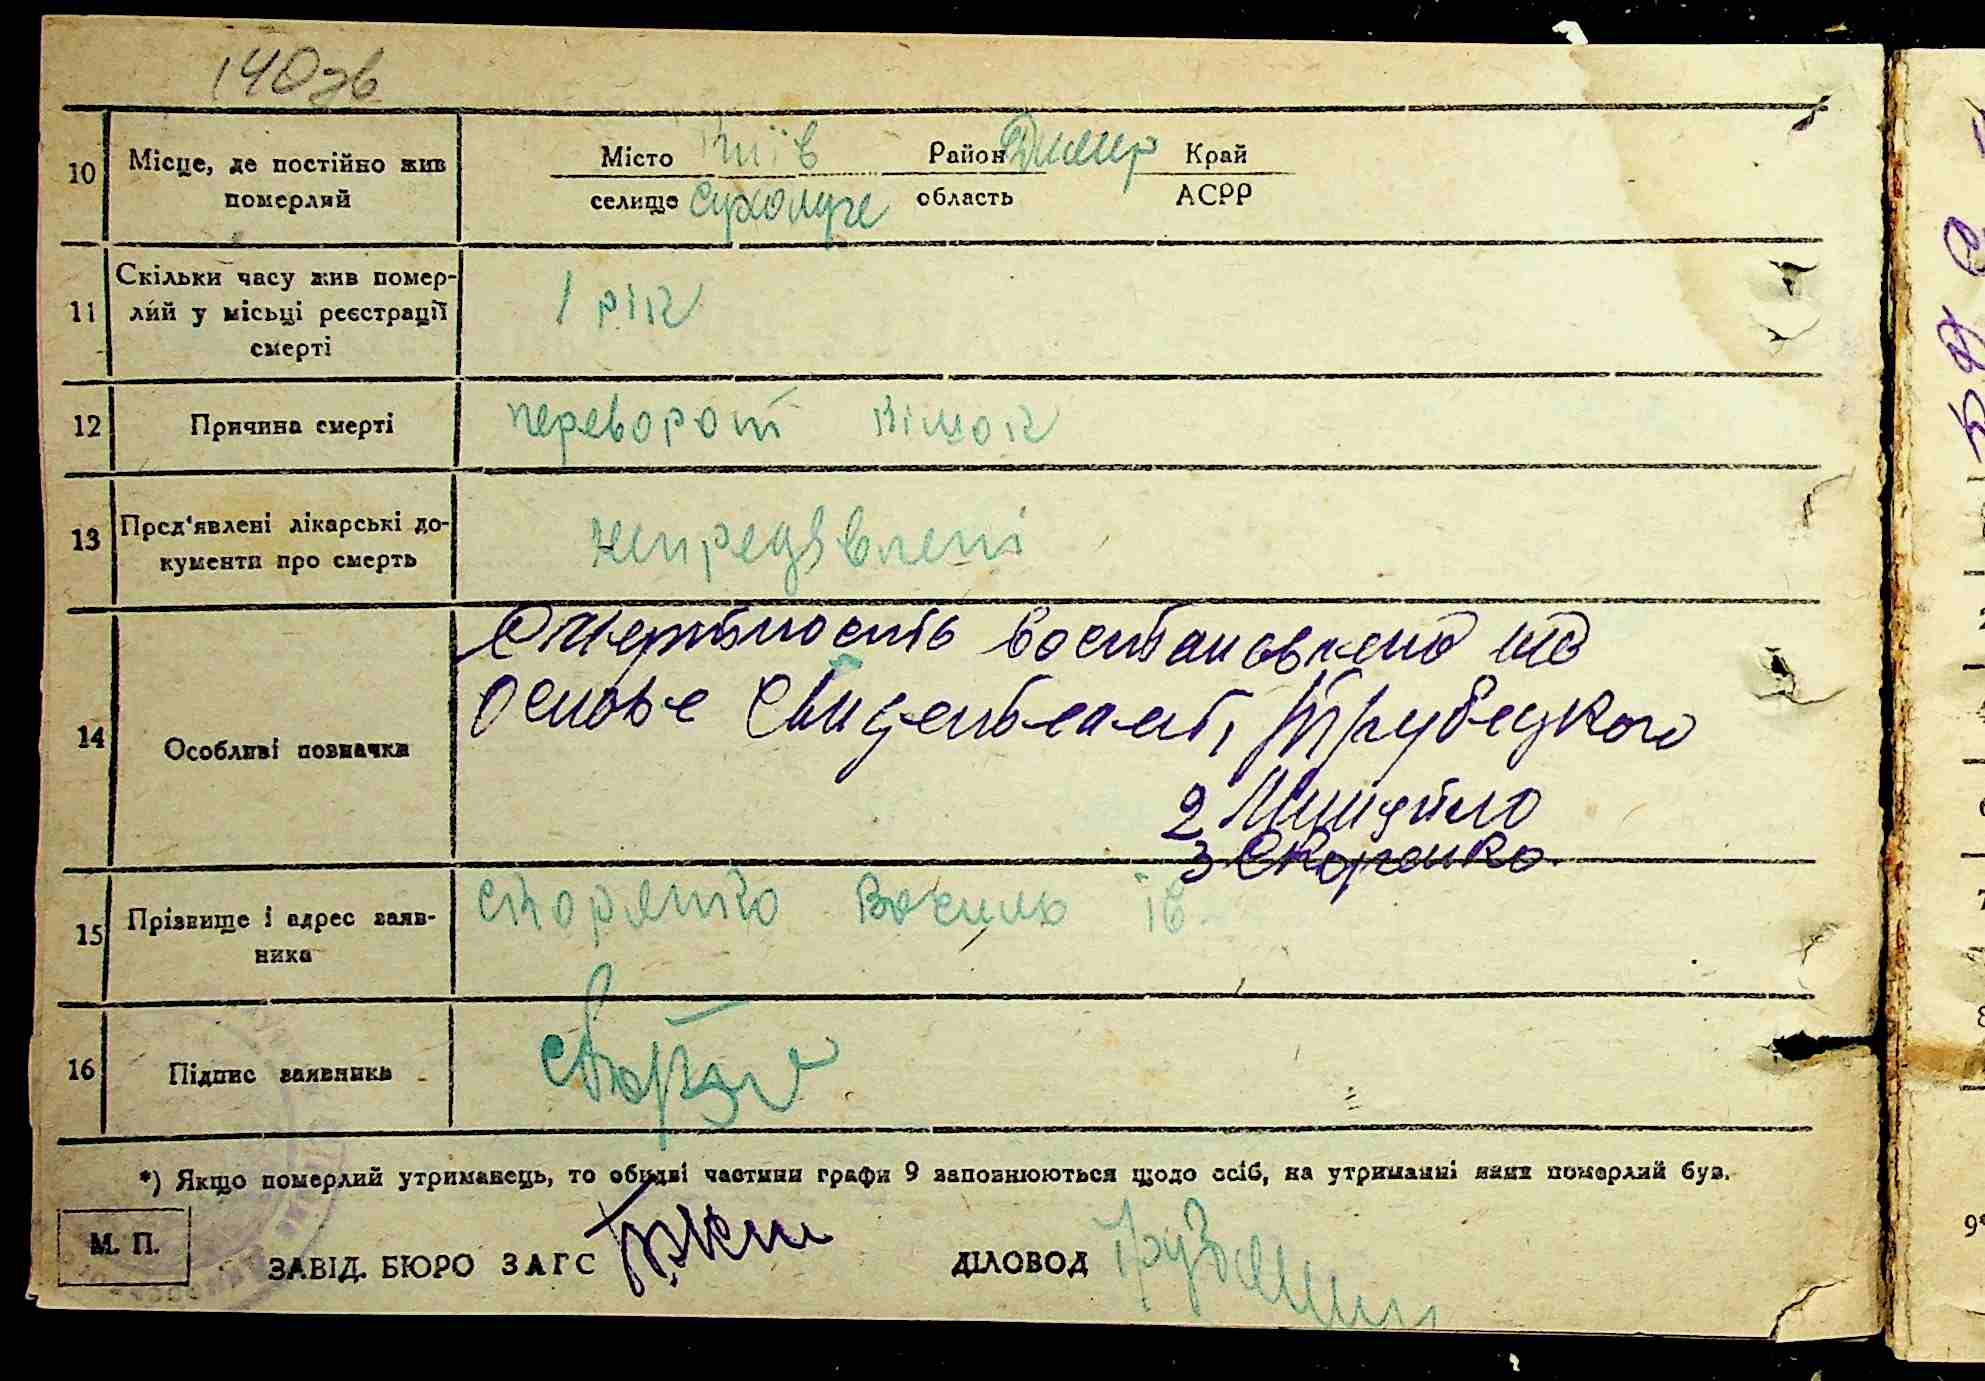 140 зв
10 Місце, де постійно жив померлий
Місто Київ Район Димир Край
селище Сухолуче область АСРР
11 Скільки часу жив помер-
лий у місьці реєстрації
смерті
1 рік
12 Причина смерті
переворот кішок
13 Пред'явлені лікарські до-
кументи про смерть
непредявлені
14 Особливі позначки
востановлено на
основе Трубецкого
2
3
15 Прізвище і адрес заяв-
ника
Василь Ів
16 Підпис заявника
*) Якщо померлий утриманець, то обидві частини графи 9 заповнюються щодо осіб, на утриманні яких померлий був.
М. П.
ЗАВІД. БЮРО ЗАГС
ДІЛОВОД